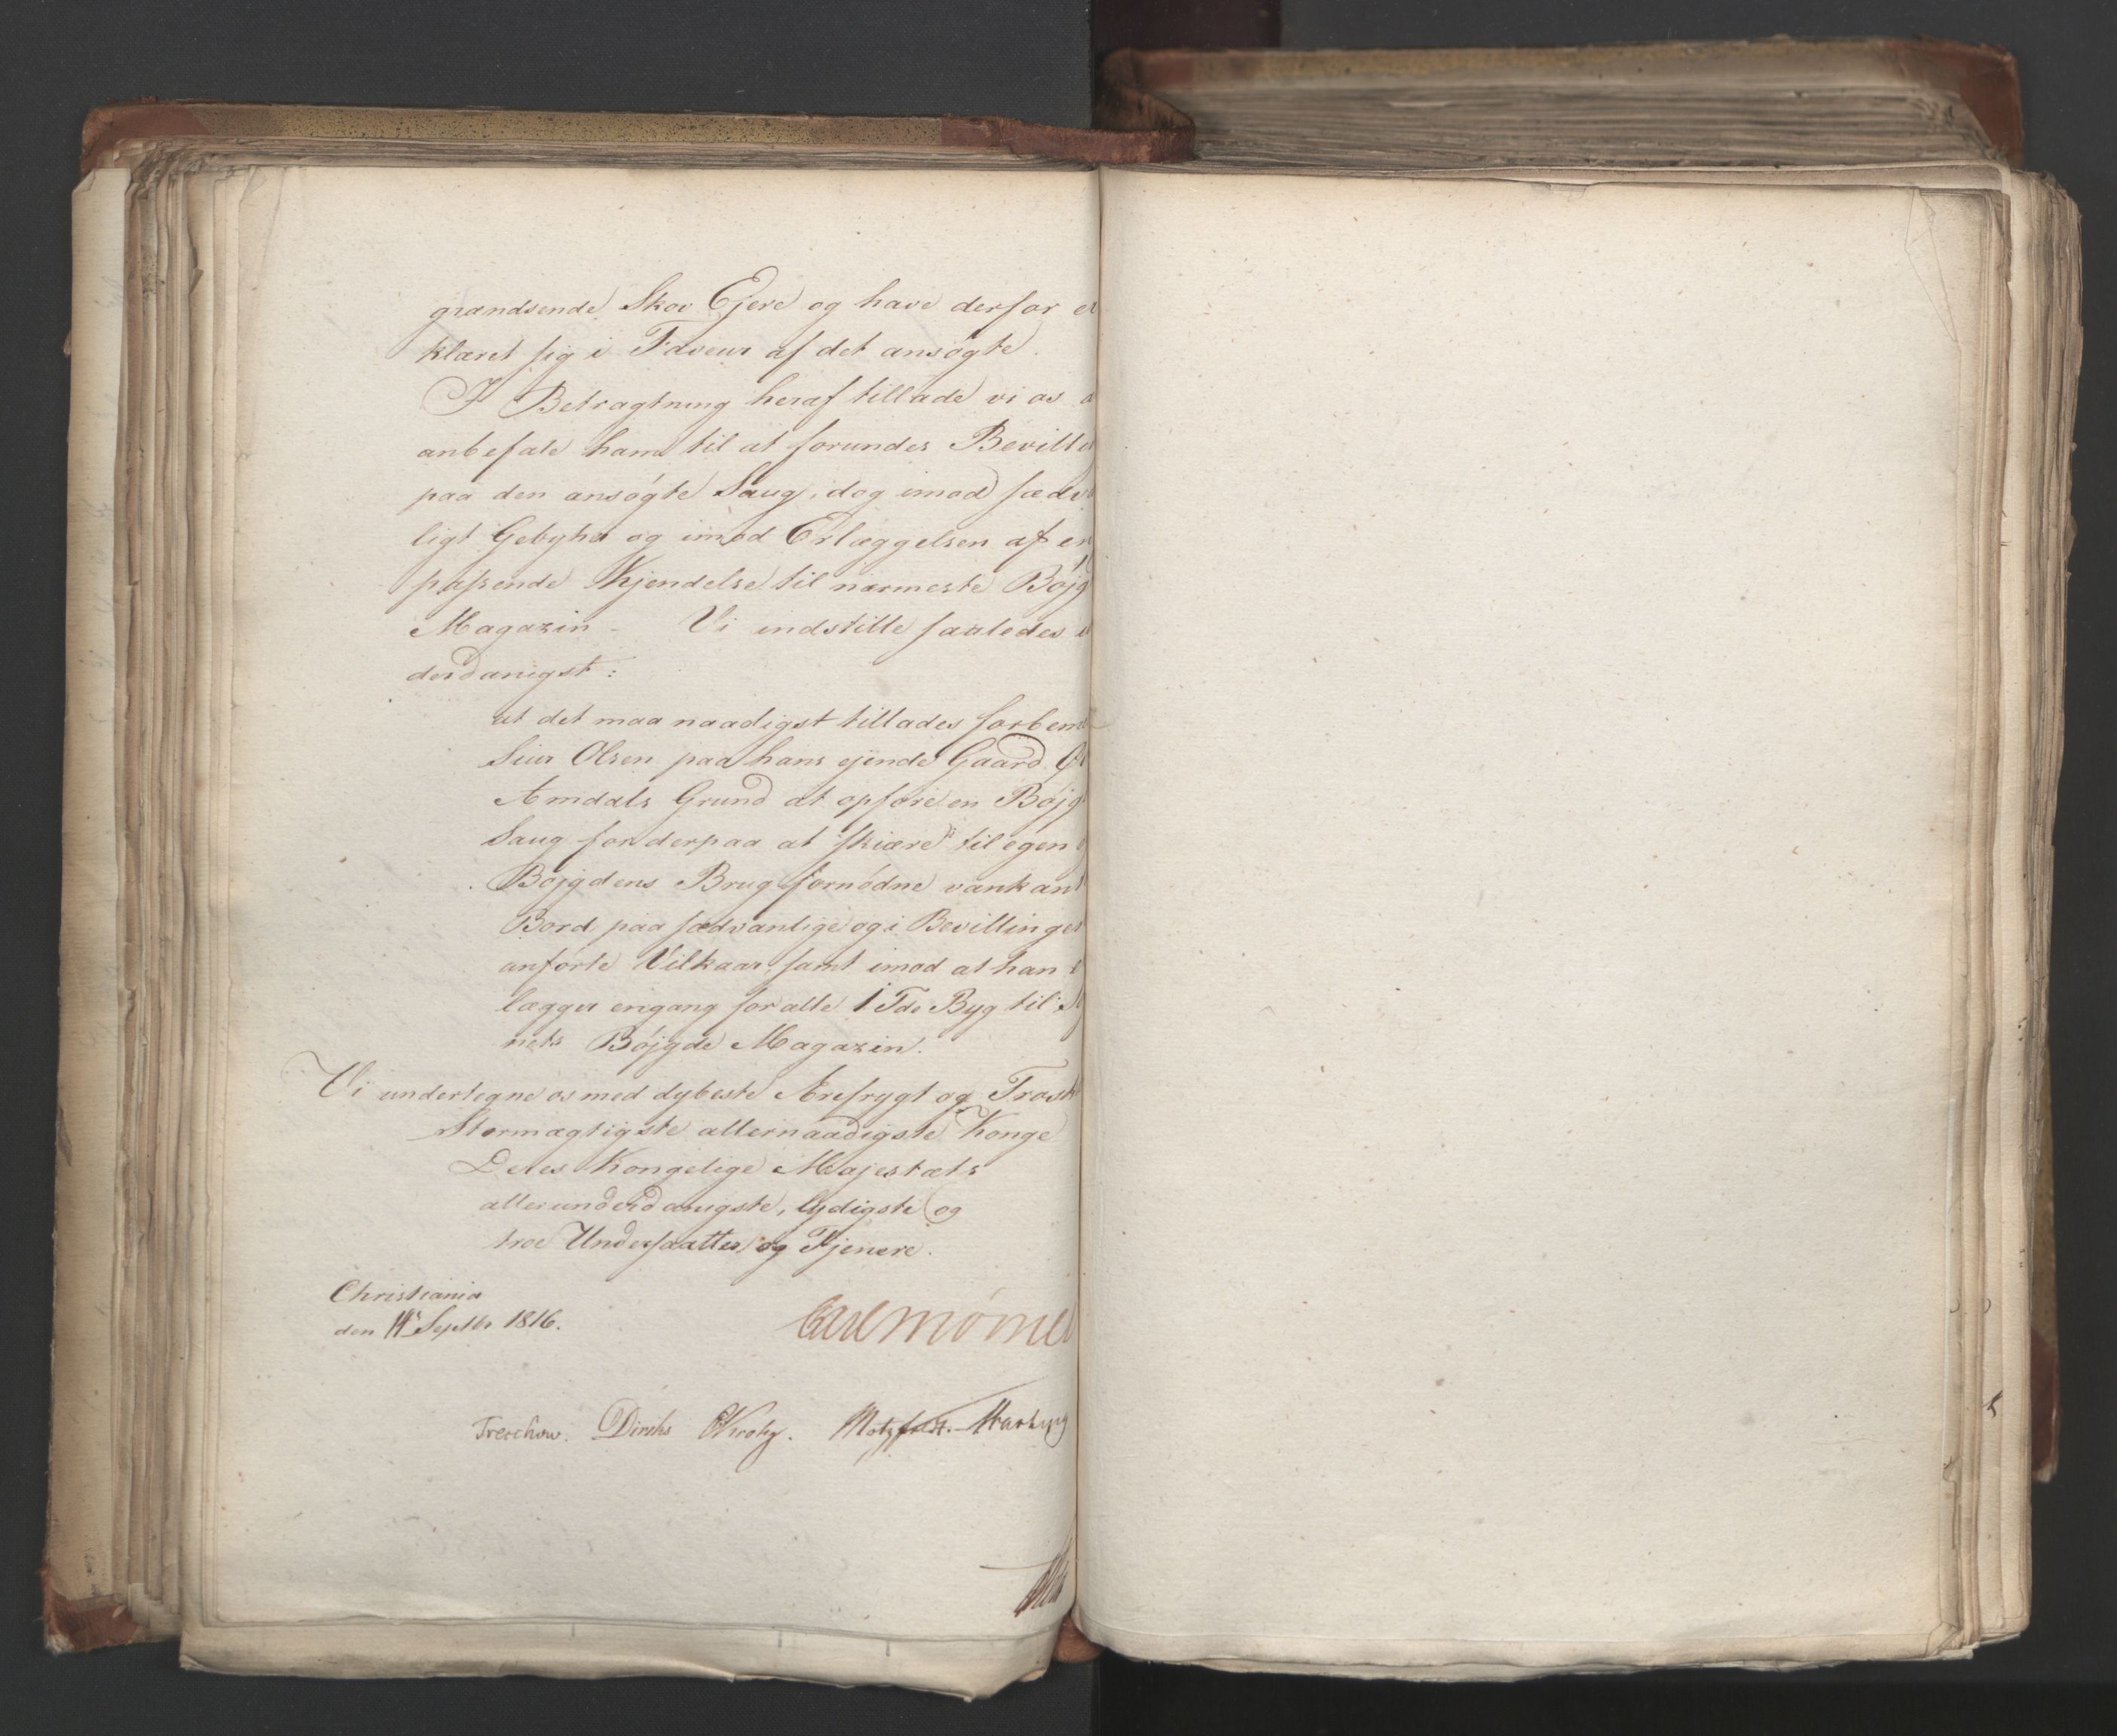 grændsende Skov Ejere og have derfor er
klæret sig i Faveur af det ansøgte.
I Betragtning heraf tillade vi os a
anbefale ham til at forundes Bevill
paa den ansøgte Saug, dog imod sædv
ligt Gebyhr og imod Erlæggelsen af en
passende Kjendelse til nærmeste Bøjg
Magazin - Vi indstille saaledes
derdanigst:
at det maa naadigst tillades forbem
Siur Olsen paa hans ejende Gaard
Amdals Grund at opføre en Bøjg
Saug for derpaa at skiære til egen
Bøjgdens Brug fornødne vankant
Bord paa sædvanlige og i Bevillingen
anførte Vilkaar, samt imod at han
lægger engang for alle 1 Tde Byg til
nets Bøjgde Magazin.
Vi undertegne os med dybeste Ærefrygt og Trosk
Stormægtigste allernaadigste Konge
Deres Kongelige Majestæts
allerunderdanigste, lydigste og
troe Undersaatter og Tjenere.
Christiania
den 14 Septbr 1816.
Carl Mörner
Treschow. Diriks Krohg. Motzfeldt.